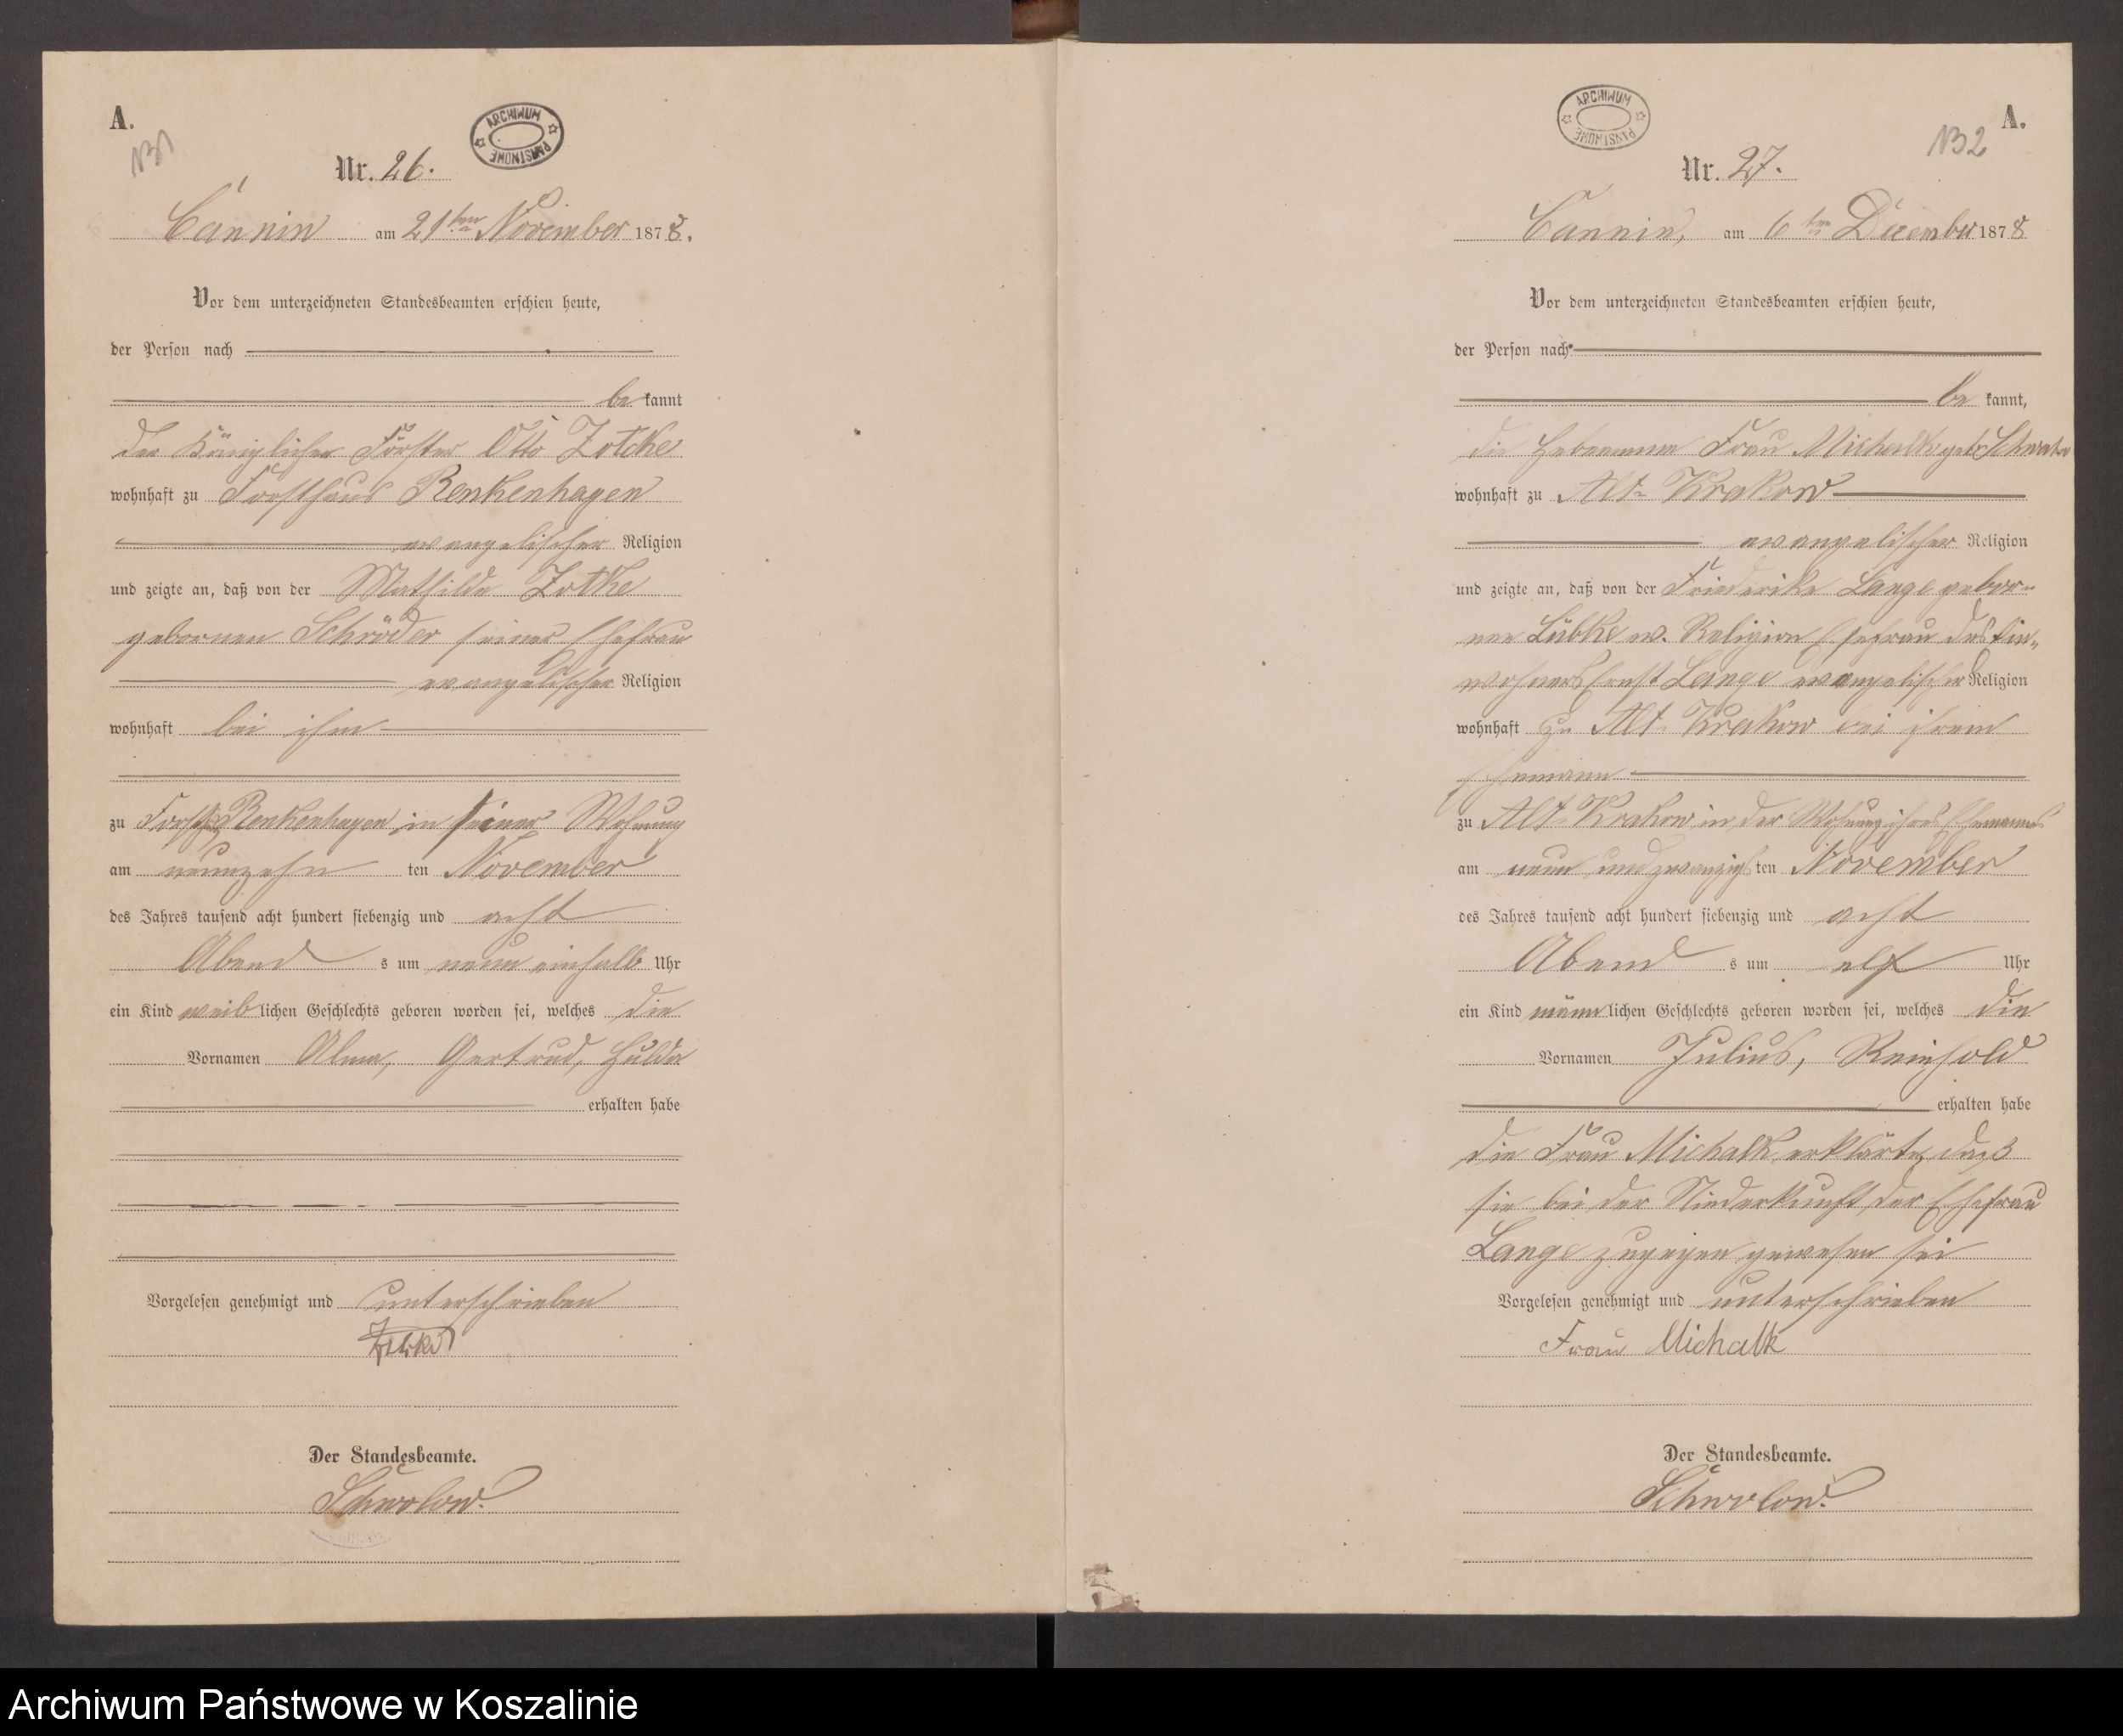 A.
131
ARCHIWUM PAŃSTWOWE
Nr. 26.
Cannin am 21ten November 1878.
Vor dem unterzeichneten Standesbeamten erschien heute,
der Person nach
be kannt
der Königlicher Förster Otto Zotcke
wohnhaft zu Forsthaus Renkenhagen
evangelischer Religion
und zeigte an, daß von der Mathilde Zotke
gebornen Schröder seiner Ehefrau
evangelischer Religion
wohnhaft bei ihm
zu Forsth. Renkenhagen in seiner Wohnung
am neunzehn ten November
des Jahres tausend acht hundert siebenzig und acht
Abend s um neun einhalb Uhr
ein Kind weib lichen Geschlechts geboren worden sei, welches die
Vornamen Alma, Gertrud, Hulda
erhalten habe
Vorgelesen genehmigt und unterschrieben
Der Standesbeamte.
Schwolow.
ARCHIWUM PAŃSTWOWE
A.
132
Nr. 27.
Cannin, am 6ten Dezember 1878
Vor dem unterzeichneten Standesbeamten erschien heute,
der Person nach
be kannt,
die Hebeamme Frau Michalk geb.
wohnhaft zu Alt-Krakow
evangelischer Religion
und zeigte an, daß von der Friederike Lange gebor-
nen Lübke ev. Religion Ehefrau des Ein-
wohners Ernst Lange evangelischer Religion
wohnhaft zu Alt-Krakow bei ihrem
Ehemann
zu Alt-Krakow in der Wohnung ihres Ehemannes
am neun und zwanzigs ten November
des Jahres tausend acht hundert siebenzig und acht
Abend s um elf Uhr
ein Kind männ lichen Geschlechts geboren worden sei, welches die
Vornamen Julius, Reinhold
erhalten habe
die Frau Michalk erklärte, daß
sie bei der Niederkunft der Ehefrau
Lange zugegen gewesen sei
Vorgelesen genehmigt und unterschrieben
Frau Michalk
Der Standesbeamte.
Schwolow.
Archiwum Państwowe w Koszalinie